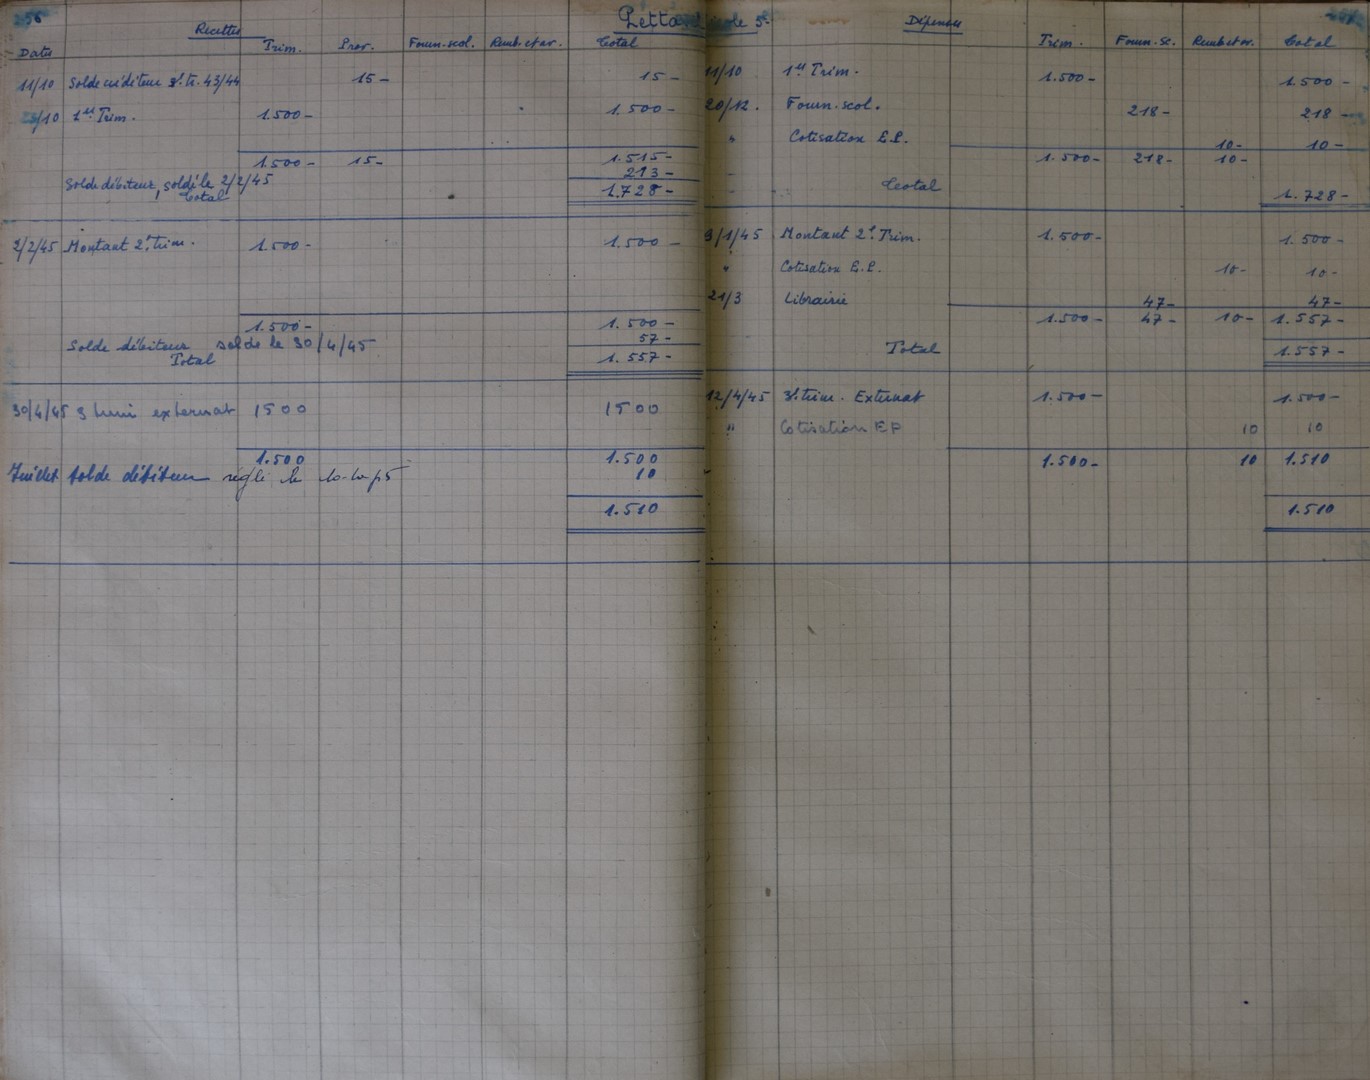 256
Recettes
Date Trim. Prov. Fourn.scol. Remb.et av. Total
11/10 Solde créditeur 3e tr. 43/44 15- 15-
/10 1er Trim. 1.500- 1.500-
1.500- 15- 1.515-
213-
Solde débiteur, soldé le 2/2/45
Total 1.728-
2/2/45 Montant 2e Trim. 1.500- 1.500-
1.500- 1.500-
57-
Solde débiteur soldé le 30/4/45
Total 1.557-
30/4/45 3 trim externat 1500 1500
1.500 1.500
Juillet Solde débiteur réglé le 10
1.510
5e
Dépenses
Trim. Fourn.Sc. Remb et av. Total
11/10 1er Trim. 1.500- 1.500-
20/12. Fourn.scol. 218- 218-
" Cotisation E.P. 10- 10-
1.500- 218- 10-
Total 1.728-
9/1/45 Montant 2e Trim. 1.500- 1.500-
" Cotisation E.P. 10- 10-
21/3 Librairie 47- 47-
1.500- 47- 10- 1.557-
Total 1.557-
12/4/45 3e trim. Externat 1.500- 1.500-
" Cotisation EP 10 10
1.500- 10 1.510
1.510